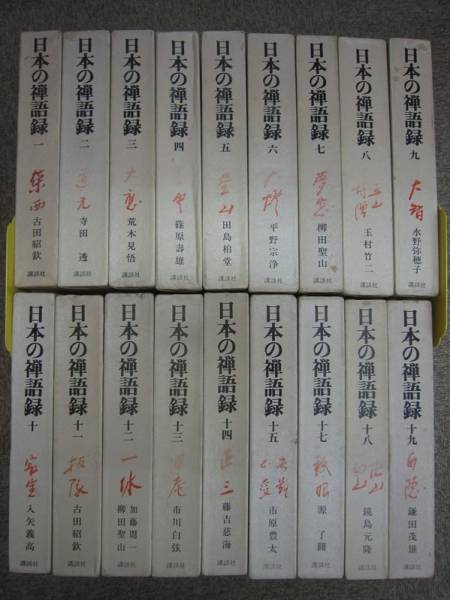 日本の禅語録 一 榮西 古田紹欽 講談社
日本の禅語録 二 道元 寺田透 講談社
日本の禅語録 三 大應 荒木見悟 講談社
日本の禅語録 四 篠原壽雄 講談社
日本の禅語録 五 瑩山 田島柏堂 講談社
日本の禅語録 六 大燈 平野宗浄 講談社
日本の禅語録 七 夢窓 柳田聖山 講談社
日本の禅語録 八 五山詩僧 玉村竹二 講談社
日本の禅語録 九 大智 水野弥穂子 講談社
日本の禅語録 十 寂室 入矢義高 講談社
日本の禅語録 十一 抜隊 古田紹欽 講談社
日本の禅語録 十二 一休 加藤周一 柳田聖山 講談社
日本の禅語録 十三 沢庵 市川白弦 講談社
日本の禅語録 十四 正三 藤吉慈海 講談社
日本の禅語録 十五 無難 正受 市原豊太 講談社
日本の禅語録 十七 鉄眼 源了圓 講談社
日本の禅語録 十八 卍山 面山 鏡島元隆 講談社
日本の禅語録 十九 白隠 鎌田茂雄 講談社